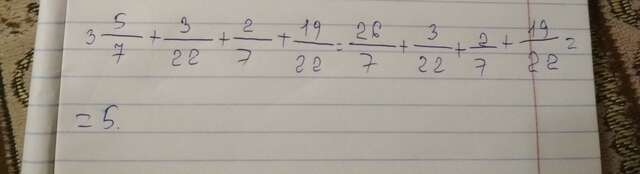 3 5/7 + 3/22 + 2/7 + 19/22 = 26/7 + 3/22 + 2/7 + 19/22 =
= 5.